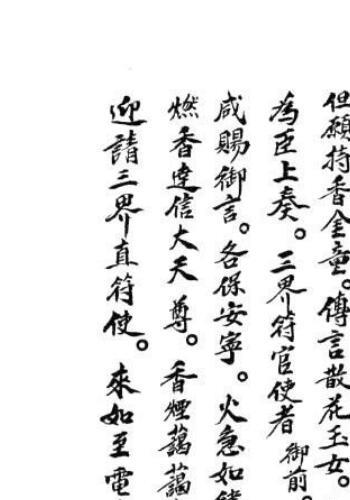 但願持香金童。傳言散花玉女。
為臣上奏。三界符官使者御前。
咸賜御言。各保安寧。火急如
燃香達信大天尊。香煙藹藹
迎請三界直符使。來如至電